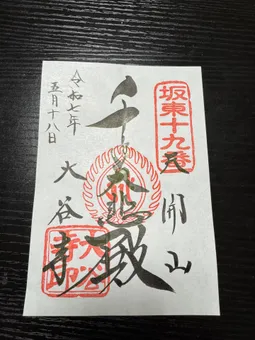 坂東十九番
天開山
千手大悲殿
大谷寺
令和七年
五月十八日